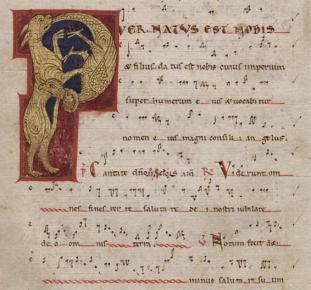 PUER NATUS EST NOBIS
& filius da tus est nobis cuius imperium
super humerum e ius & vocabitur
nomen e ius magni consili i an gelus
Cantate R Viderunt om
nes fines ter re saluta re de i nostri iubilate
de o om nis terra V Notum fecit
minus saluta re su um